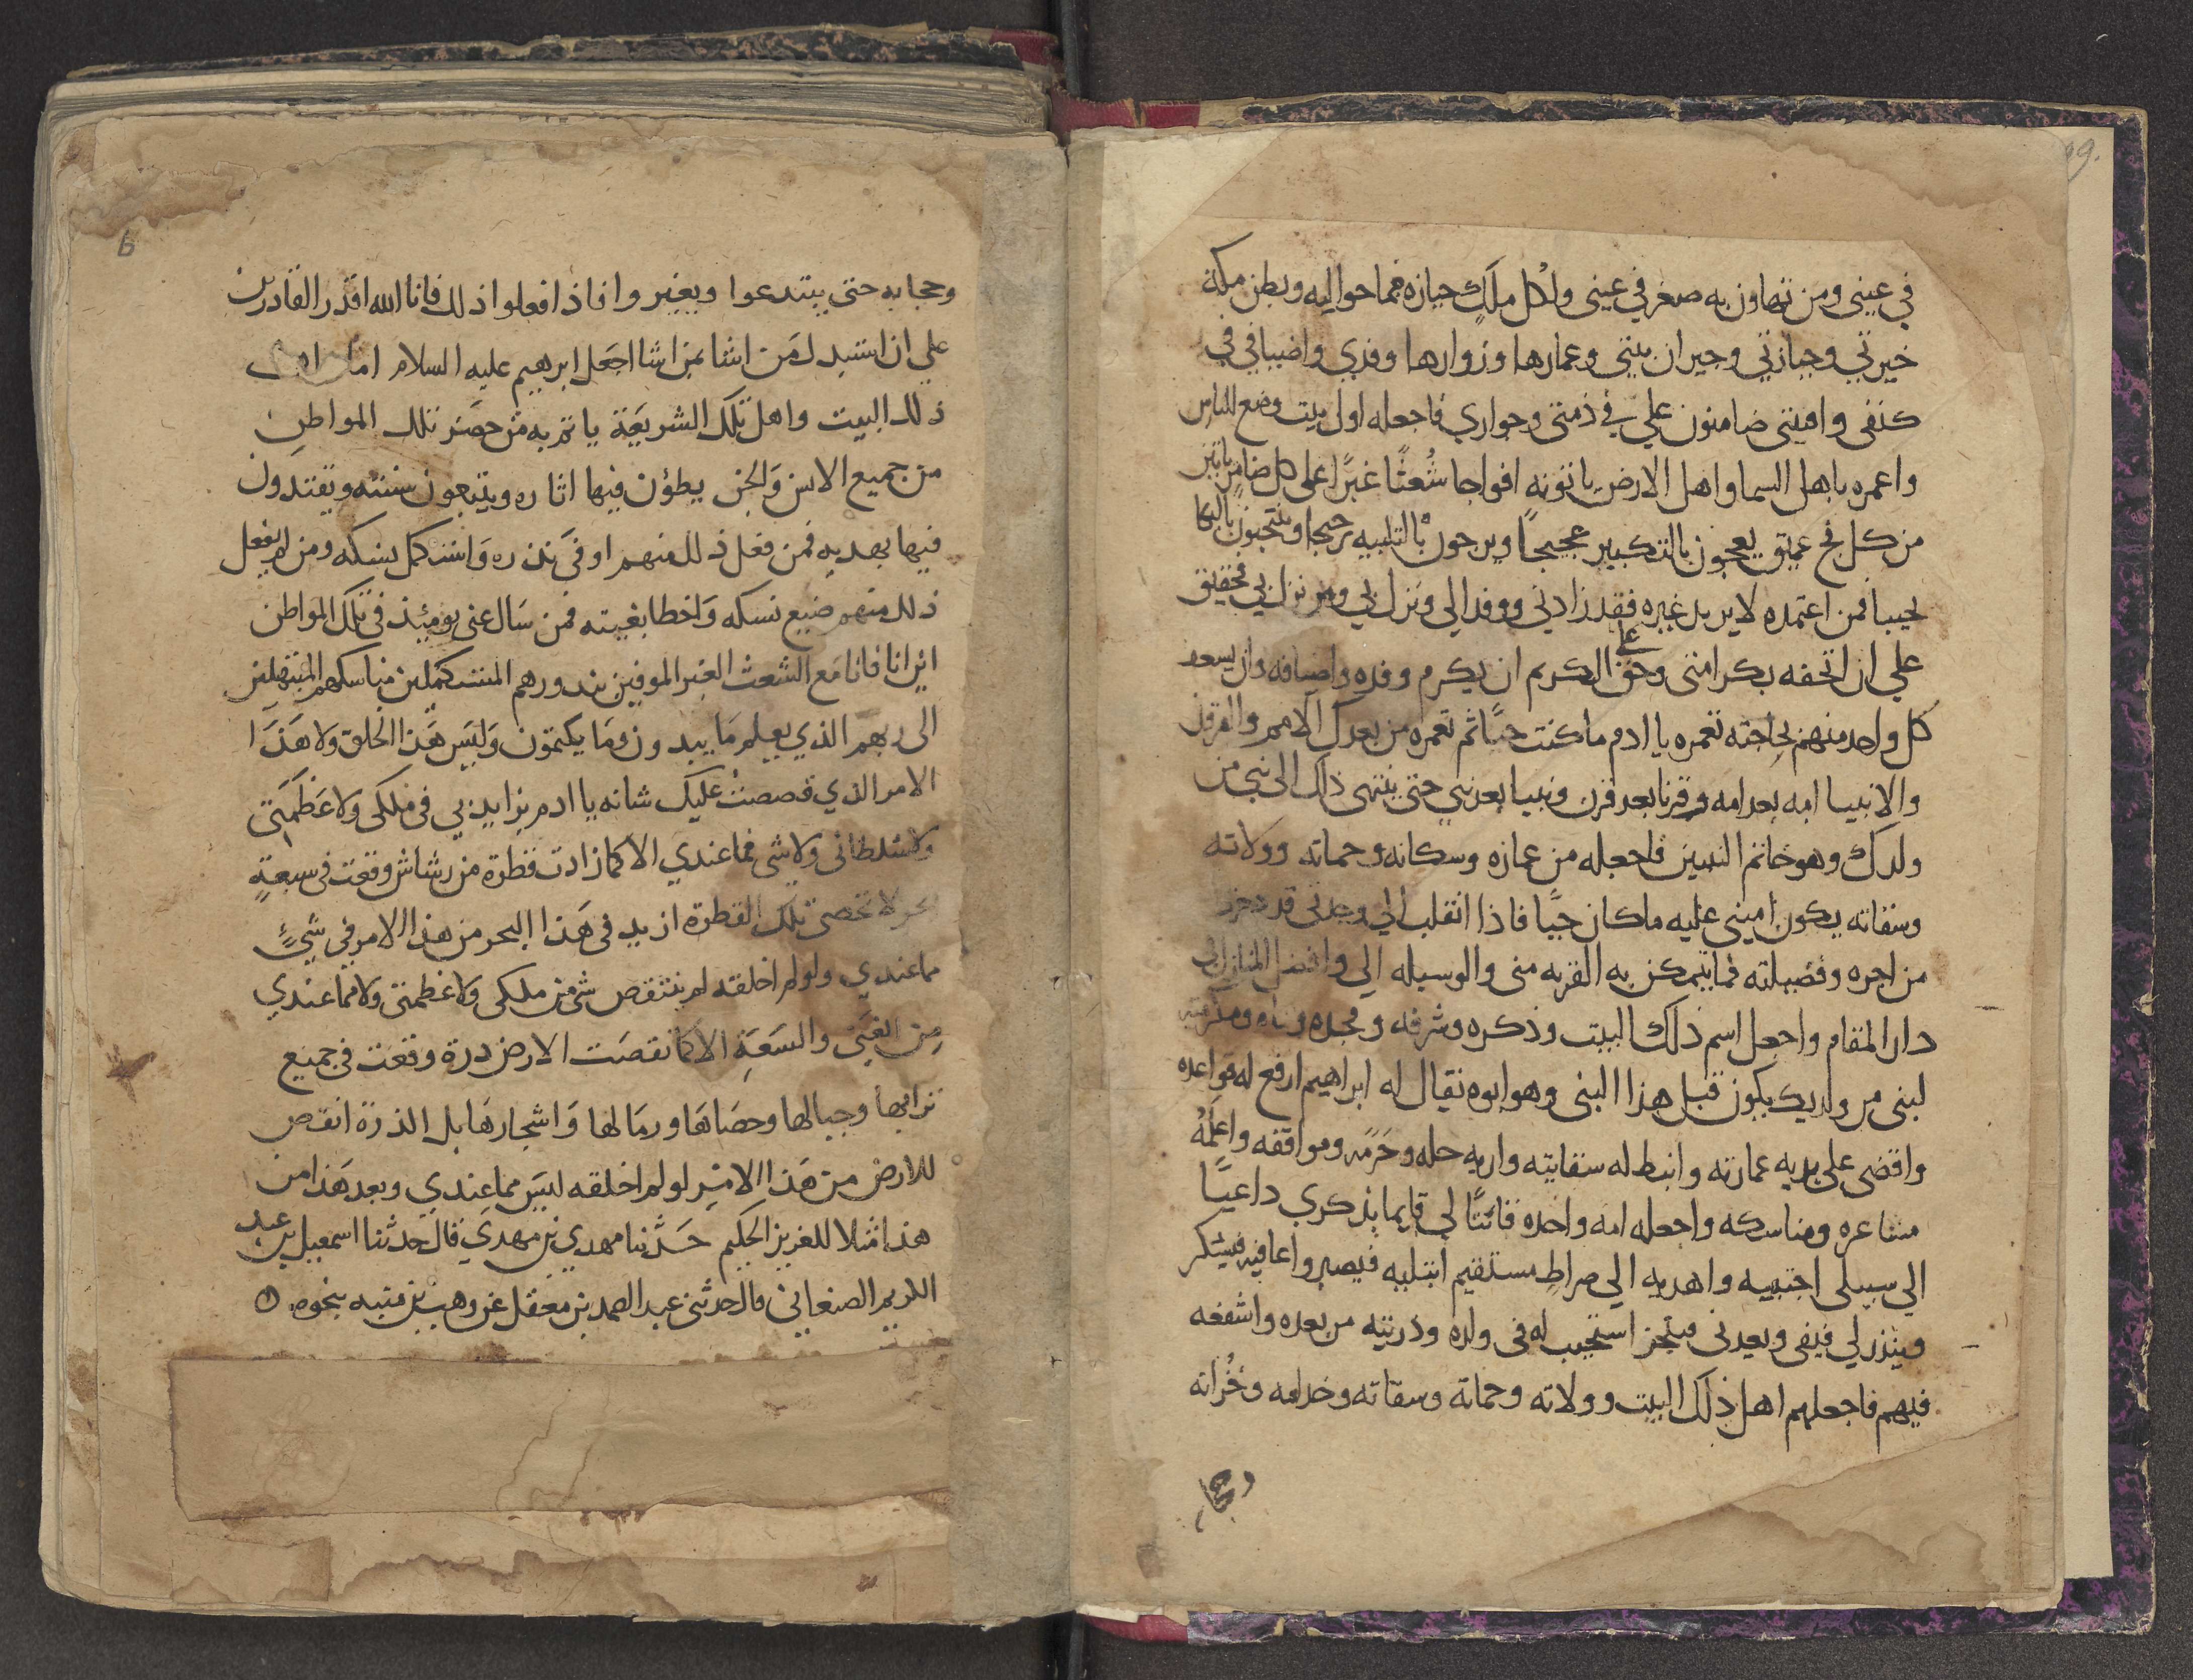 في عيني ومن تهاون به صغر في عيني ولكل ملك حيازه فما حواليه وبطن مكة
خيرتي وحيازتي وجيران بيتي وعمارها وزوارها وفدي واضيافي في
كنفى وافنيتى ضامنون علي في ذمتى وجواري فاجعله اول بيت وضع للناس
واعمره باهل السما واهل الارض ياتونه افواجا شُعثًا غبرًا على كل ضامر ياتين
من كل فج عميق يعجون بالتكبير عجيجاً ويرجون بالتلبيه رجيجا وينتحبون بالبكا
نحيبا فمن اعتمده لا يريد غيره فقد زارني ووفد الي ونزل بي ومن نزل بي فحقيق
علي ان اتحفه بكرامتى وحق على الكريم ان يكرم وفده واضيافه وان يسعد
كل واحد منهم بحاجته تعمره يا ادم ما كنت حيًا ثم تعمره من بعدك الامم والقرون
والانبيا امه بعد امه وقرنا بعد قرن ونبيا بعد نبي حتى ينتهى ذلك الى نبي من
ولدك وهو خاتم النبيين فاجعله من عماره وسكانه وحماته وولاته
وسقاته يكون اميني عليه ما كان حيًا فاذا انقلب الي وجدنى قد ذخرت
من اجره وفضيلته فما يتمكن به القربه منى والوسيله الي وافضل المنازل في
دار المقام واجعل اسم ذلك البيت وذكره وشرفه ومجده وسناه ومكرمته
لبنى من ولدك يكون قبل هذا النبى وهو ابوه يقال له ابراهيم ارفع له قواعده
واقضى على يديه عمارته وانبط له سقايته واريه حله وحَرَمه ومواقفه واعلمُهُ
مشاعره ومناسكه واجعله امه واحده قانتًا لي قايما بذكري داعيًا
الي سبيلى اجتبيه واهديه الي صراطٍ مستقيم ابتليه فيصبر واعافيه فيشكر
وينذر لي فيفى ويعدنى فينجز استجيب له فى ولده وذريته من بعده واشفعه
فيهم فاجعلهم اهل ذلك البيت وولاته وحماته وسقاته وخدامه وخُزانه
وحجا
وحجابه حتى يبتدعوا ويغيروا فاذا فعلوا ذلك فانا الله اقدر القادرين
علي ان استبدل من اشا بمن اشا اجعل ابرهيم عليه السلام امام اهل
ذلك البيت واهل تلك الشريعة ياتم به من حضر تلك المواطن
من جميع الانس والجن يطؤن فيها اثاره ويتبعون سنته ويقتدون
فيها بهديه فمن فعل ذلك منهم اوفى نذره واستكمل نسكه ومن لم يفعل
ذلك منهم ضيع نسكه واخطا بغيته فمن سال عنى يومئذ في تلك المواطن
اين انا فانا مع الشعث الغبر الموفين بنذورهم المستكملين مناسكهم المبتهلين
الى ربهم الذي يعلم ما يبدون وما يكتمون وليس هذا الخلق ولا هذا
الامر الذي قصصت عليك شانه يا ادم بزايد بي فى ملكى ولا عظمتى
ولا سلطانى ولا شى مما عندي الا كما زادت قطرة من رشاش وقعت فى سبعةِ
ابحر لا تحصى تلك القطرة ازيد فى هذا البحر من هذا الامر في شيءٍ
مما عندي ولو لم اخلقه لم ينتقص شى من ملكى ولا عظمتى ولا مما عندي
من الغنى والسَعَةِ الا كما نقصت الارض ذرة وقعت فى جميع
ترابها وجبالها وحصاها ورمالها واشجارها بل الذرة انقص
للارض من هذا الامر لو لم اخلقه ليس مما عندي وبعد هذا من
هذا مثلا للعزيز الحكيم حَدثنا مهدي بن مهدي قال حدثنا اسمعيل بن عبد
الكريم الصنعانى قال حدثنى عبد الصمد بن معقل عن وهب بن منبه بنحوه